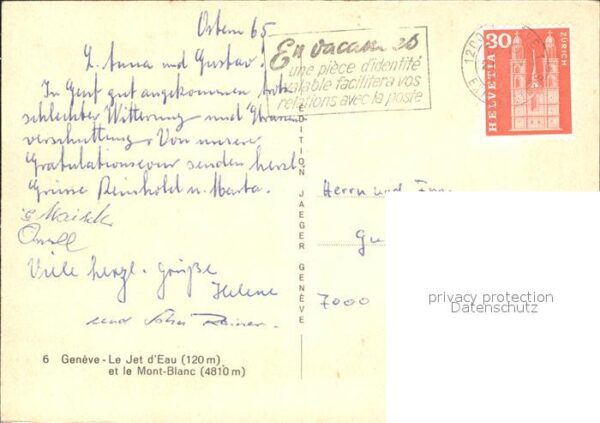 Ostern 65
L. Anna und Gustav!
In Genf gut angekommen trotz
schlechter Witterung und
verschüttung. Von unserer
Gratulationscour senden herzl.
Grüsse Reinhold u. Marta.
Viele herzl. Grüße
Helene
und
En vacances
une pièce d'identité
valable facilitera vos
relations avec la poste
HELVETIA
30
ZÜRICH
EDITION JAEGER GENÈVE
Herrn und
Gu
7000
privacy protection
Datenschutz
6 Genève - Le Jet d'Eau (120 m)
et le Mont-Blanc (4810 m)